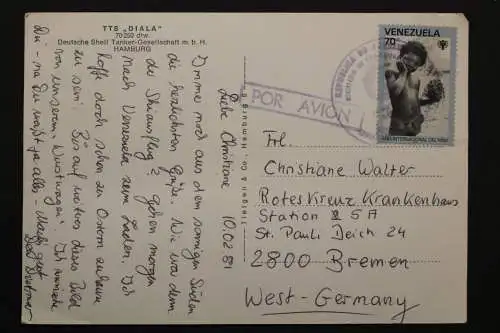 TTS „DIALA"
70250 dtw.
Deutsche Shell Tanker-Gesellschaft m. b. H.
HAMBURG
10.02.81
Liebe Christiane
Immer noch aus dem sonnigen Süden
die herzlichsten Grüße. Wie war denn
der Skiausflug? Gehen morgen
nach Venezuela zum Laden. Ich
hoffe doch schon zu Ostern zuhause
zu sein. Bis auf weiteres dieses Bild
von unserem „Musikwagen". Ich wünsche
Dir - na Du weißt ja alles - Mach's gut
Dein
VENEZUELA
70
AÑO INTERNACIONAL DEL NIÑO
POR AVION
Frl.
Christiane Walter
Rotes Kreuz Krankenhaus
Station 25A
St. Pauli Deich 24
2800 Bremen
West-Germany